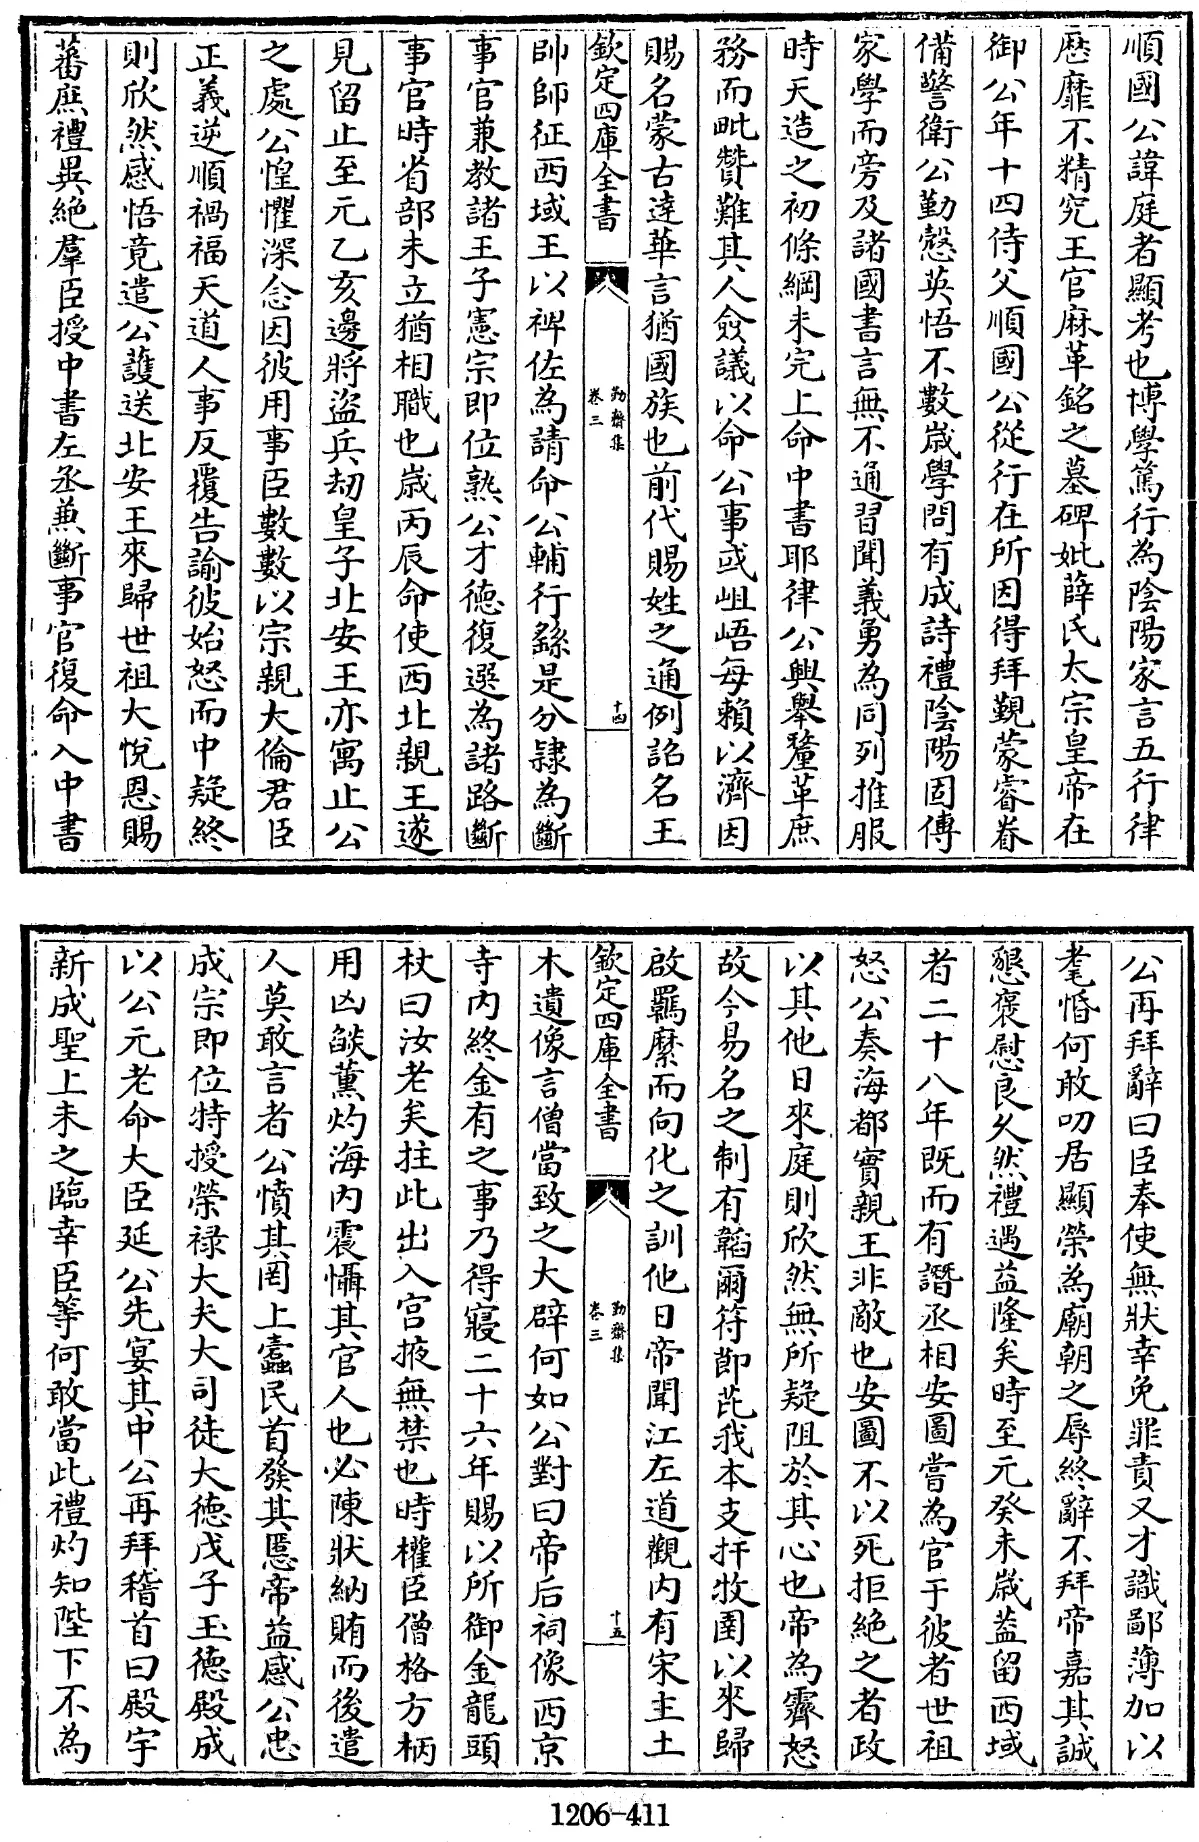 順國公諱庭者顯考也博學篤行為陰陽家言五行律
厯靡不精究王官麻革銘之墓碑妣薛氏太宗皇帝在
御公年十四侍父順國公從行在所因得拜覲蒙睿眷
備警衛公勤慤英悟不數嵗學問有成詩禮陰陽固傳
家學而旁及諸國書言無不通習聞義勇為同列推服
時天造之初條綱未完上命中書耶律公興舉釐革庶
務而毗贊難其人僉議以命公事或岨峿每賴以濟因
賜名蒙古逹華言猶國族也前代賜姓之通例詔名王
欽定四庫全書
勤齋集
卷三
十四
帥師征西域王以裨佐為請命公輔行繇是分隷為斷
事官兼教諸王子憲宗即位熟公才徳復選為諸路斷
事官時省部未立猶相職也嵗丙辰命使西北親王遂
見留止至元乙亥邊將盜兵刼皇子北安王亦寓止公
之處公惶懼深念因彼用事臣數數以宗親大倫君臣
正義逆順禍福天道人事反覆告諭彼始怒而中疑終
則欣然感悟竟遣公護送北安王來歸世祖大悅恩賜
蕃庶禮異絶羣臣授中書左丞兼斷事官復命入中書
公再拜辭曰臣奉使無狀幸免罪責又才識鄙薄加以
耄惛何敢叨居顯榮為廟朝之辱終辭不拜帝嘉其誠
懇褒慰良乆然禮遇益隆矣時至元癸未嵗益留西域
者二十八年既而有譖丞相安圖嘗為官于彼者世祖
怒公奏海都實親王非敵也安圖不以死拒絶之者政
以其他日來庭則欣然無所疑阻於其心也帝為霽怒
故今易名之制有韜爾符節芘我本支扞牧圉以來歸
啟羈縻而向化之訓他日帝聞江左道觀内有宋主土
欽定四庫全書
勤齋集
卷三
十五
木遺像言僧當致之大辟何如公對曰帝后祠像西京
寺内終金有之事乃得寢二十六年賜以所御金龍頭
杖曰汝老矣拄此出入宫掖無禁也時權臣僧格方柄
用凶燄薰灼海内震懾其官人也必陳狀納賄而後遣
人莫敢言者公憤其罔上蠧民首發其慝帝益感公忠
成宗即位特授榮禄大夫大司徒大徳戊子玉徳殿成
以公元老命大臣延公先宴其中公再拜稽首曰殿宇
新成聖上未之臨幸臣等何敢當此禮灼知陛下不為
1206-411